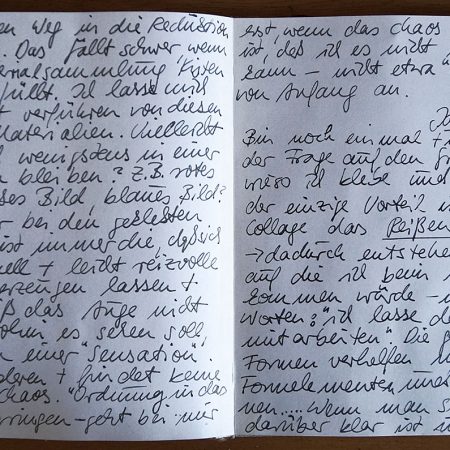 en Weg in die Reduktion
. Das fällt schwer, wenn
erialsammlung Kisten
füllt. Ich lasse mich
t verführen von diesen
Materialien. Vielleicht
wenigstens in einer
bleiben? Z.B. rotes
es Bild, blaues Bild?
r bei den geklebten
ist immer die, daß sich
ell + leicht reizvolle
erzeugen lassen +
ß das Auge nicht
ohin es sehen soll,
n einer "Sensation".
deren + findet keine
Chaos. "Ordnung in das
ringen - geht bei mir
erst, wenn das Chaos
ist, daß ich es nicht
kann – nicht etwa
von Anfang an.
Bin noch einmal
der Frage auf den
wieso ich klebe und
der einzige Vorteil
Collage das Reißen
→ dadurch entstehe
auf die ich beim
kommen würde –
Worten: "ich lasse de
mitarbeiten". Die
Formen verhelfen
Formelementen
nen.... Wenn man s
darüber klar ist